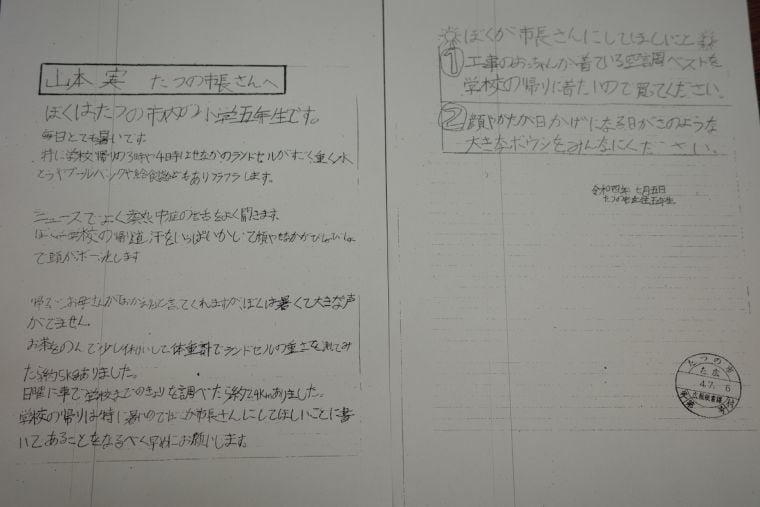 山本 実 たつの市長さんへ
ぼくはたつの市内の小学五年生です。
毎日とても暑いです。
特に学校帰りの3時や4時はせなかのランドセルがすごく重く水
とうやプールバックや給食袋などもありフラフラします。
ニュースでよく熱中症の を よく聞きます。
ぼくは学校の帰り道汗をいっぱいかいて顔やせなかがびしょびしょ
で頭がボーとします
帰るとお母さんがおかえりと言ってくれますが、ぼくは暑くて大きな声
がでません。
お茶をのんで少し休けいして体重計でランドセルの重さを測ってみ
たら約5kgありました。
日曜に車で学校までのきょりを調べたら約2.4kmありました。
学校の帰りは特に暑いので 市長さんにしてほしいことに書
いてあることをなるべく早めにお願いします。
ぼくが市長さんにしてほしいこと
① 工事のおっちゃんが着ている空調ベストを
学校の帰りに着たいので買てください。
② 顔やかたが日かげになる日がさのような
大きなボウシをみんなにください。
令和四年 七月五日
たつの市 五年生
たつの市
4.7.6
広報秘書課